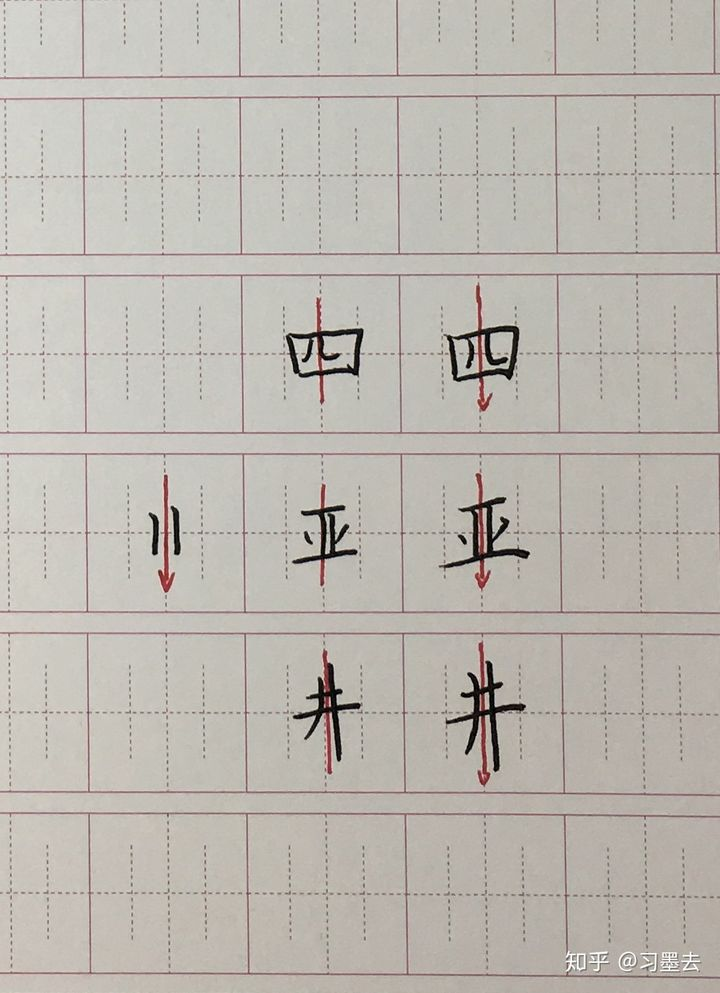 四 四
〢 亚 亚
井 井
知乎 @习墨去